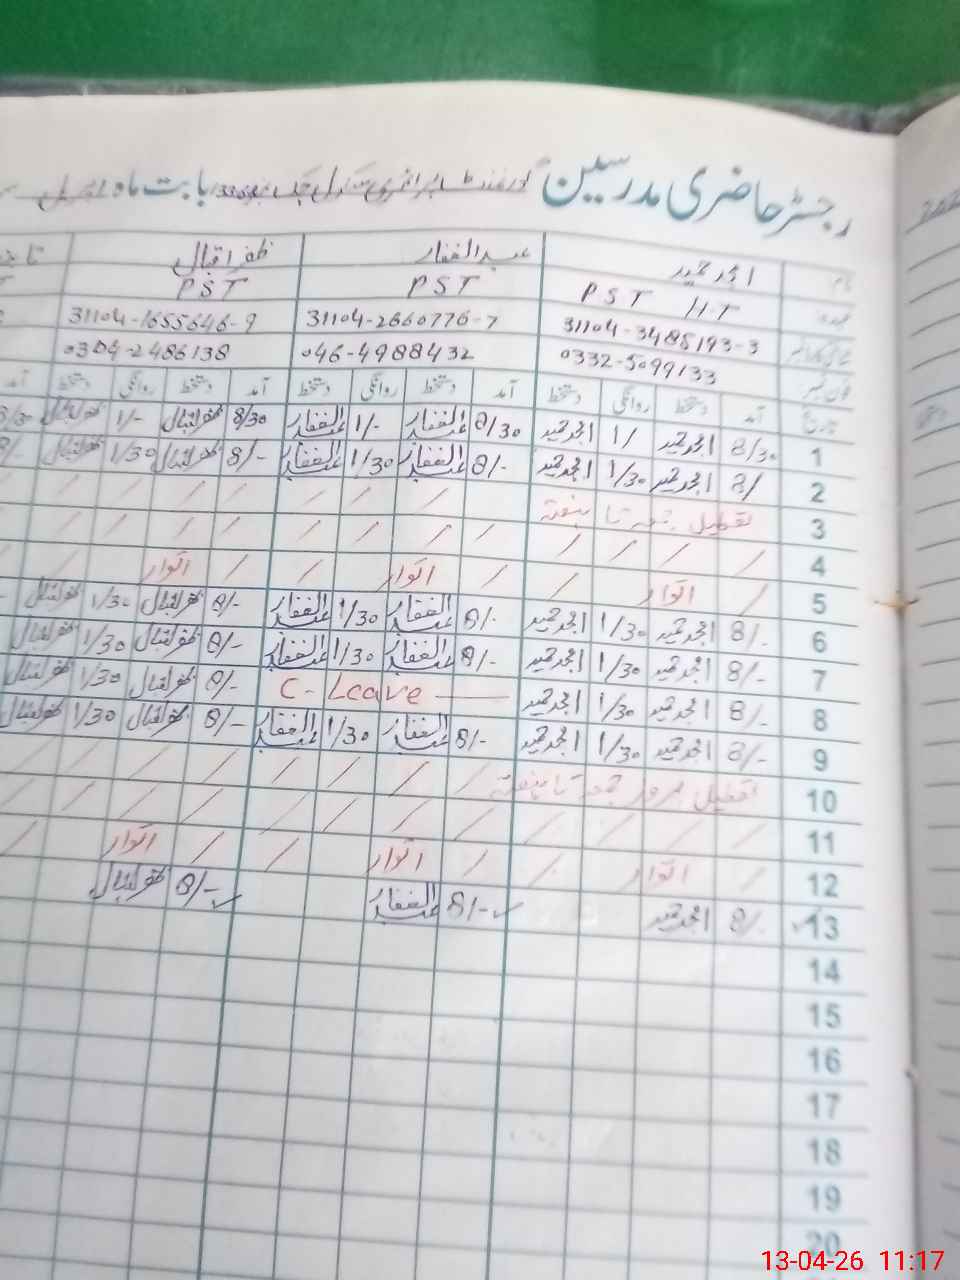 رجسٹر حاضری مدرسین گورنمنٹ پرائمری سکول چک نمبر بابت ماہ اپریل
نام امجد حمید عبدالغفار ظفر اقبال
عہدہ PST H.T PST PST
شناختی کارڈ نمبر 31104-3485193-3 31104-2660776-7 31104-1655646-9
فون نمبر 0332-5099133 046-4988432 0304-2486138
تاریخ آمد دستخط روانگی دستخط آمد دستخط روانگی دستخط آمد دستخط روانگی دستخط آمد
1 8/30 امجد حمید 1/ امجد حمید 8/30 عبدالغفار 1/- عبدالغفار 8/30 ظفر اقبال 1/- ظفر اقبال 8/30
2 8/ امجد حمید 1/30 امجد حمید 8/- عبدالغفار 1/30 عبدالغفار 8/- ظفر اقبال 1/30 ظفر اقبال 8/-
3 تعطیل جمعہ تا ہفتہ / / / / / / / /
4 / / / / / / / / / / / /
5 / اتوار / / اتوار / / اتوار /
6 8/- امجد حمید 1/30 امجد حمید 8/- عبدالغفار 1/30 عبدالغفار 8/- ظفر اقبال 1/30 ظفر اقبال
7 8/- امجد حمید 1/30 امجد حمید 8/- عبدالغفار 1/30 عبدالغفار 8/- ظفر اقبال 1/30 ظفر اقبال
8 8/- امجد حمید 1/30 امجد حمید C-Leave 8/- ظفر اقبال 1/30 ظفر اقبال
9 8/- امجد حمید 1/30 امجد حمید 8/- عبدالغفار 1/30 عبدالغفار 8/- ظفر اقبال 1/30 ظفر اقبال
10 تعطیل بروز جمعہ تا ہفتہ / / / / / / / /
11 / / / / / / / / / / / /
12 / اتوار / / اتوار / / اتوار /
13 8/- امجد حمید 8/- عبدالغفار 8/- ظفر اقبال
14
15
16
17
18
19
20
13-04-26 11:17